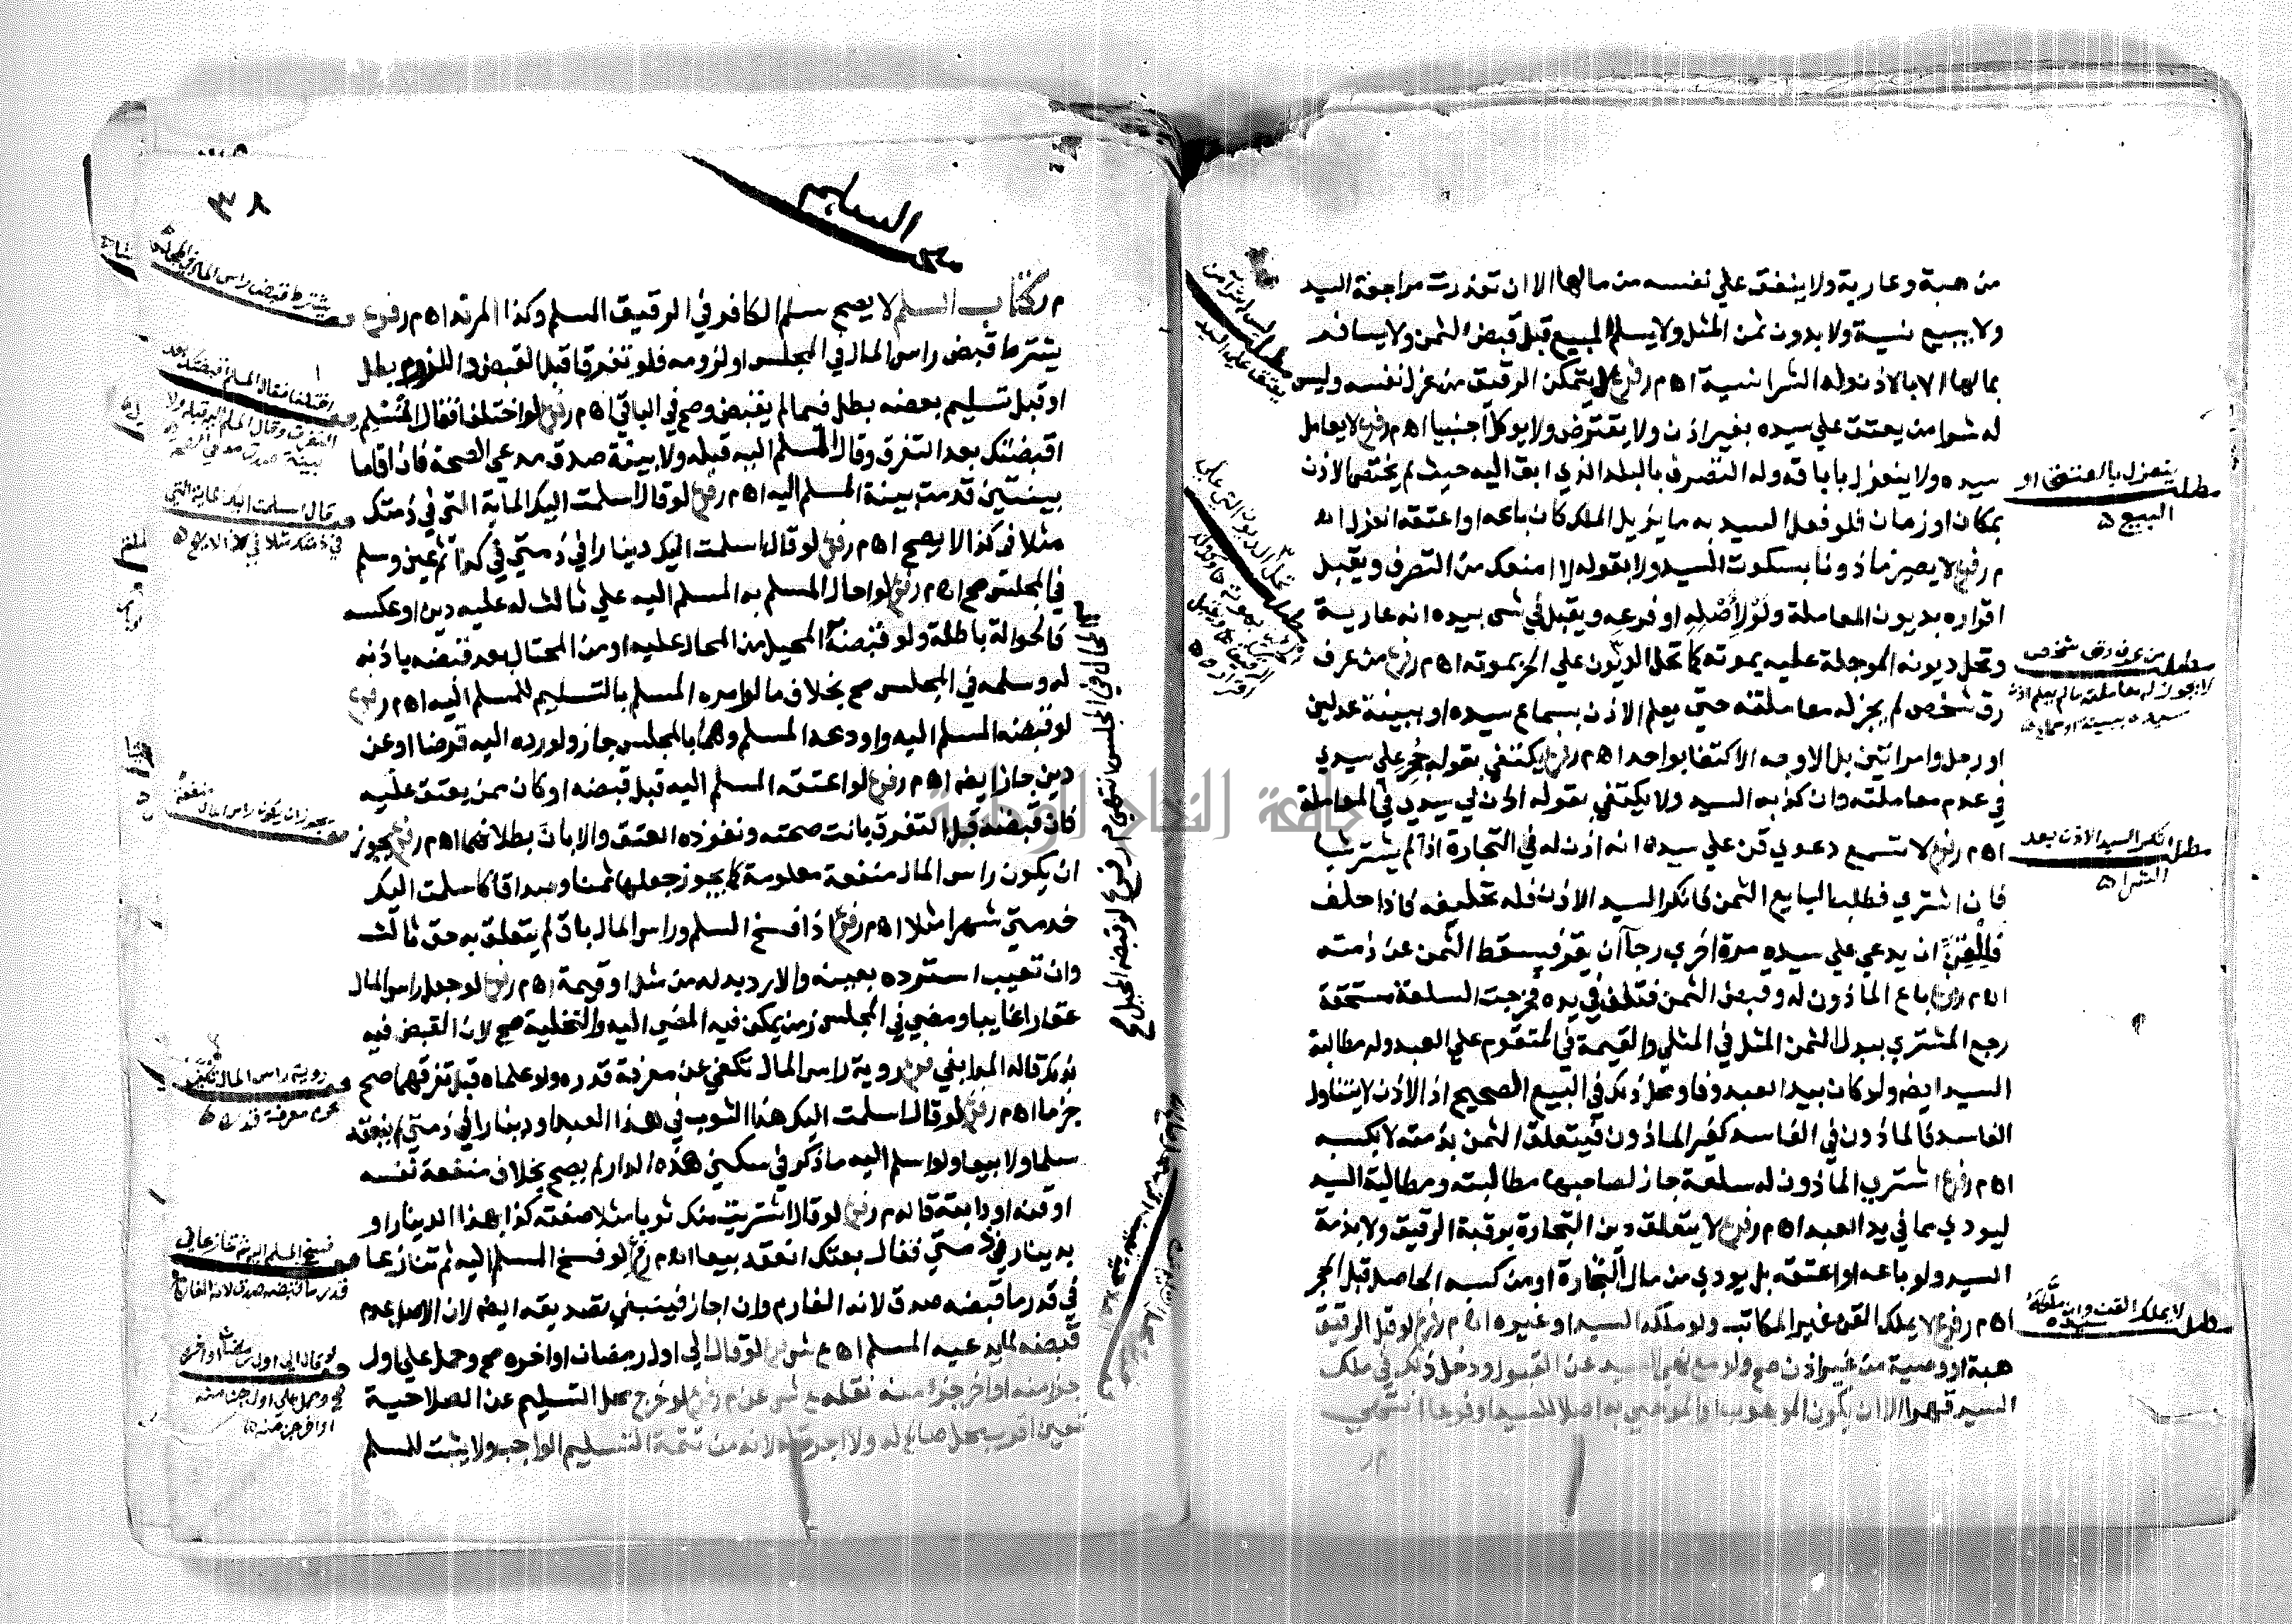 من هبة وعارية ولا ينفق علي نفسه من مالها الا ان تعذرت مراجعة السيد
ولا يبيع نسية ولا بدون ثمن المثل ولا يسلم المبيع قبل قبض الثمن ولا يسافر
بمالها الا بالاذن وله الشرا نسية اه م ر فرع لا يتمكن الرقيق من عزل نفسه وليس
له شرا من يعتق علي سيده بغير اذن ولا يقترض ولا يوكل اجنبيا اه م ر فرع لا يعامل
سيده ولا ينعزل باباقه وله التصرف بالبلد الذي ابق اليه حيث لم يختص الاذن
بمكان او زمان فلو فعل السيد به ما يزيل الملك كان باعه او اعتقه انعزل اه
م ر فرع لا يصير ماذونا بسكوت السيد ولا بقوله لا امنعك من التصرف ويقبل
اقراره بديون المعاملة ولو لاصله او فرعه ويقبل في شي بيده انه عارية
وتحل ديونه الموجلة عليه بموته كما تحل الديون علي الحر بموته اه م ر فرع من عرف
رق شخص لم يجز له معاملته حتي يعلم الاذن بسماع سيده او ببينة عدلين
او رجل وامراتين بل الاوجه الاكتفا بواحد اه م ر فرع يكتفي بقوله حجر علي سيدي
في عدم معاملته وان كذبه السيد ولا يكتفي بقوله اذن لي سيدي في المعاملة
اه م ر فرع لا تسمع دعوي قن علي سيده انه اذن له في التجارة اذا لم يشتر شيا
فان اشتري فطلب البايع الثمن فانكر السيد الاذن فله تحليفه فاذا حلف
فللقن ان يدعي علي سيده مرة اخري رجا ان يقر فيسقط الثمن عن ذمته
اه م ر فرع باع الماذون له وقبض الثمن فتلف في يده فخرجت السلعة مستحقة
رجع المشتري ببدل الثمن المثل في المثلي والقيمة في المتقوم علي العبد وله مطالبة
السيد ايضه ولو كان بيد العبد وفا ومحل ذلك في البيع الصحيح اذ الاذن لا يتناول
الفاسد فالماذون في الفاسد كغير الماذون فيتعلق الثمن بذمته لا بكسبه
اه م ر فرع اشتري الماذون له سلعة جاز لصاحبها مطالبته ومطالبة السيد
ليودي مما في يد العبد اه م ر فرع لا يتعلق دين التجارة برقبة الرقيق ولا بذمة
السيد ولو باعه او اعتقه بل يودي من مال التجارة او من كسبه الحاصل قبل الحجر
اه م ر فرع لا يملك القن غير المكاتب ولو ملكه السيد او غيره اه م ر فرع لو قبل الرقيق
هبة او وصية من غير اذن صح ولو مع نهي السيد عن القبول ودخل ذلك في ملك
السيد قهرا الا ان يكون الموهوب او الموصي به اصلا للسيد او فرعا انتهي
م ر
مطلب ينعزل بالعتق او
البيع
مطلب من عرف رق شخص
لا يجوز له معاملته ما لم يعلم اذن
سيده ببينة او سماع
مطلب انكر السيد الاذن بعد
الشرا
مطلب لا يملك القن وان ملكه
سيده
السلم
٣٨
م ر كتاب السلم لا يصح سلم الكافر في الرقيق المسلم وكذا المرتد اه م ر فرع
يشترط قبض راس المال في المجلس او لزومه فلو تفرقا قبل القبض واللزوم بطل
او قبل تسليم بعضه بطل فيما لم يقبض وصح في الباقي اه م ر فرع لو اختلفا فقال المسلم
اقبضتك بعد التفرق وقال المسلم اليه قبله ولا بينة صدق مدعي الصحة فان اقاما
بينتين قدمت بينة المسلم اليه اه م ر فرع لو قال اسلمت اليك الماية التي في ذمتك
مثلا في كذا لا يصح اه م ر فرع لو قال اسلمت اليك دينارا في ذمتي في كذا ثم عين وسلم
في المجلس صح اه م ر فرع لو احال المسلم به المسلم اليه علي ثالث له عليه دين او عكسه
فالحوالة باطلة ولو قبضه المحيل من المحال عليه او من المحتال بعد قبضه باذنه
له وسلمه في المجلس صح بخلاف ما لو امره المسلم بالتسليم للمسلم اليه اه م ر فرع
لو قبضه المسلم اليه واودعه المسلم وهما بالمجلس جاز ولو رده اليه قرضا او عن
دين جاز ايضه اه م ر فرع لو اعتقه المسلم اليه قبل قبضه او كان ممن يعتق عليه
فان قبضه قبل التفرق بانت صحته ونفوذه العتق والا بان بطلانهما اه م ر فرع يجوز
ان يكون راس المال منفعة معلومة كما يجوز جعلها ثمنا وصداقا كاسلمت اليك
خدمتي شهرا مثلا اه م ر فرع اذا فسخ السلم وراس المال باق لم يتعلق به حق ثالث
وان تعيب استرده بعينه والا رد بدله من مثل او قيمة اه م ر فرع لو جعل راس المال
عقارا غايبا ومضي في المجلس زمن يمكن فيه المضي اليه والتخلية صح لان القبض فيه
بذلك قاله المرابغي فرع روية راس المال تكفي عن معرفة قدره ولو علماه قبل تفرقهما صح
جزما اه م ر فرع لو قال اسلمت اليك هذا الثوب في هذا العبد او دينارا في ذمتي لم ينعقد
سلما ولا بيعا ولو اسلم اليه ما ذكر في سكني هذه الدار لم يصح بخلاف منفعة نفسه
او قنه او دابته قاله م ر فرع لو قال اشتريت منك ثوبا مثلا صفته كذا بهذا الدينار او
بدينار في ذمتي فقال بعتك انعقد بيعا اه م ر فرع لو فسخ المسلم اليه ثم تنازعا
في قدر ما قبضه صدق لانه الغارم وان اجاز فينبغي تصديقه ايضه لان الاصل عدم
قبضه لما يدعيه المسلم اه ع ش فرع لو قال الي اول رمضان او اخره صح وحمل علي اول
جزء منه او اخر جزء منه نقله ع ش عن م ر فرع لو خرج محل التسليم عن الصلاحية
تعين اقرب محل صالح له ولا اجرة له لانه من تتمة التسليم الواجب ولا يثبت للمسلم
يشترط قبض راس المال في المجلس
اختلفا فقال المسلم اقبضتك بعد
التفرق وقال المسلم اليه قبله ولا
بينة صدق مدعي الصحة
قال اسلمت اليك الماية التي
في ذمتك مثلا في كذا لا يصح
يجوز ان يكون راس المال منفعة
روية راس المال تكفي
عن معرفة قدره
فسخ المسلم اليه ثم تنازعا في
قدر ما قبضه صدق لانه الغارم
لو قال الي اول رمضان او اخره
صح وحمل علي اول جزء منه
او اخر جزء منه
جامعة النجاح الوطنية